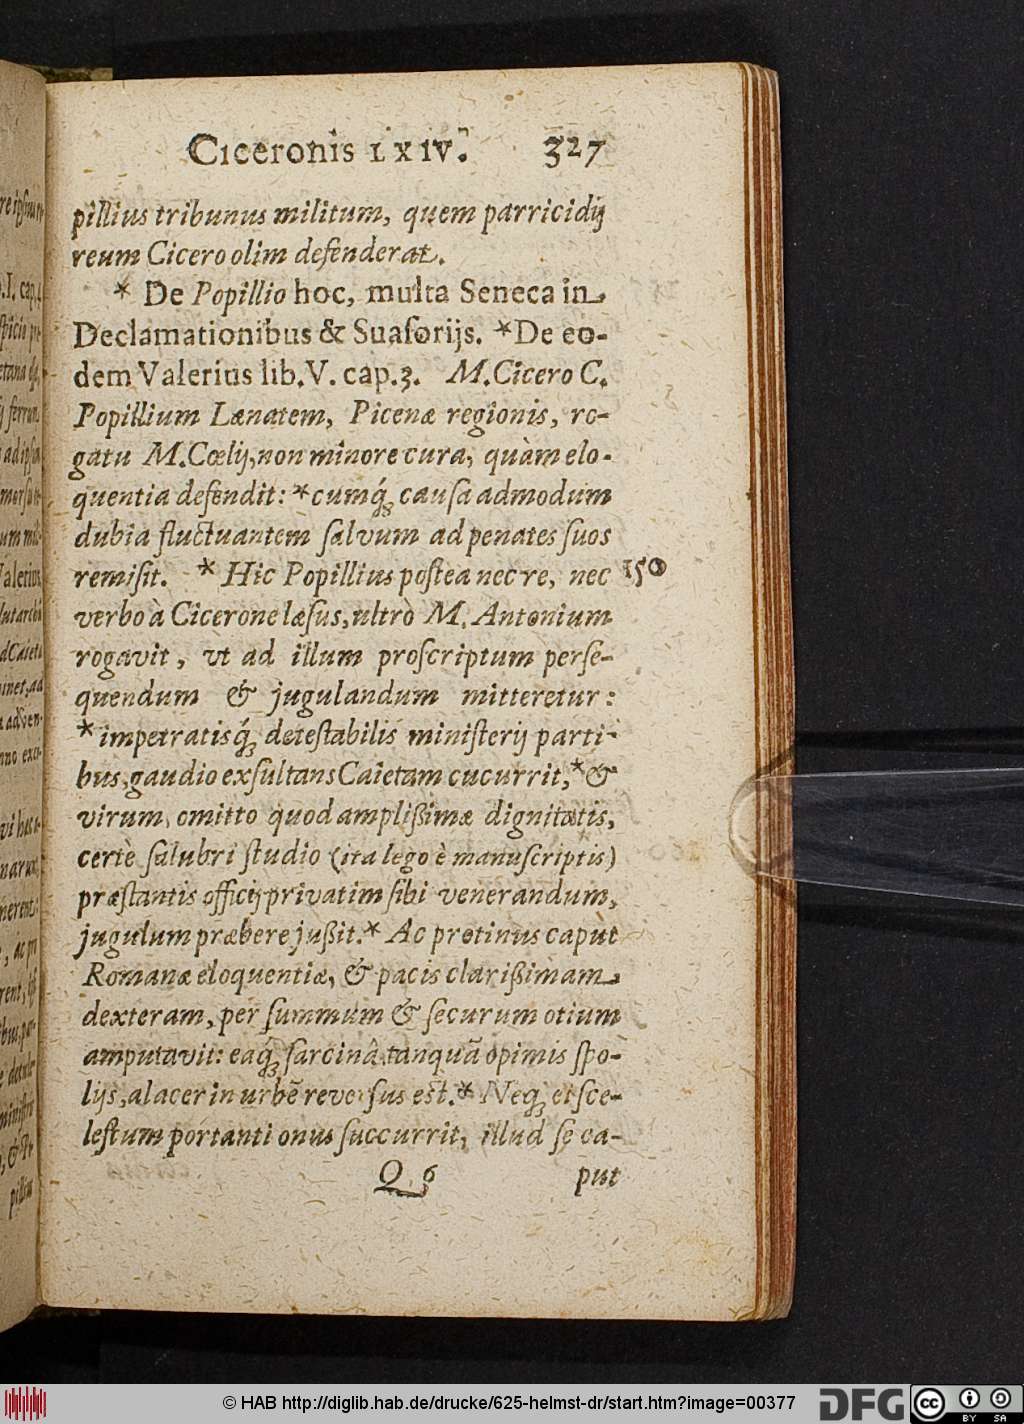 Ciceronis LXIV. 327
pillius tribunus militum, quem parricidij
reum Cicero olim defenderat.
* De Popillio hoc, multa Seneca in
Declamationibus & Suaſorijs. *De eo-
dem Valerius lib.V. cap.3. M.Cicero C.
Popillium Lænatem, Picenæ regionis, ro-
gatu M.Cœlij, non minore cura, quàm elo-
quentia defendit: *cumq́; cauſa admodum
dubia fluctuantem ſalvum ad penates ſuos
remiſit. * Hic Popillius poſtea nec re, nec 150
verbo à Cicerone læſus, ultrò M. Antonium
rogavit, vt ad illum proſcriptum perſe-
quendum & jugulandum mitteretur:
*impetratisq́; deteſtabilis miniſterij parti-
bus, gaudio exſultans Caietam cucurrit,*&
virum, omitto quod ampliſſimæ dignitatis,
certè ſalubri ſtudio (ita lego è manuſcriptis)
præſtantis officij privatim ſibi venerandum,
jugulum præbere juſſit.* Ac protinus capùt
Romanæ eloquentiæ, & pacis clariſſimam
dexteram, per ſummum & ſecurum otium
amputavit: eaq́; ſarcinâ tanquã opimis ſpo-
lijs, alacer in urbẽ reverſus est.* Neq; et ſce-
leſtum portanti onus ſuccurrit, illud ſe ca-
Q 6 put
© HAB http://diglib.hab.de/drucke/625-helmst-dr/start.htm?image=00377
DFG
cc BY SA